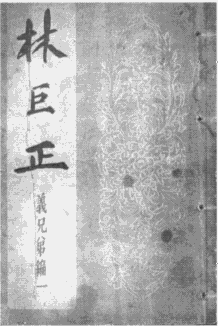 林巨正
義兄弟篇一